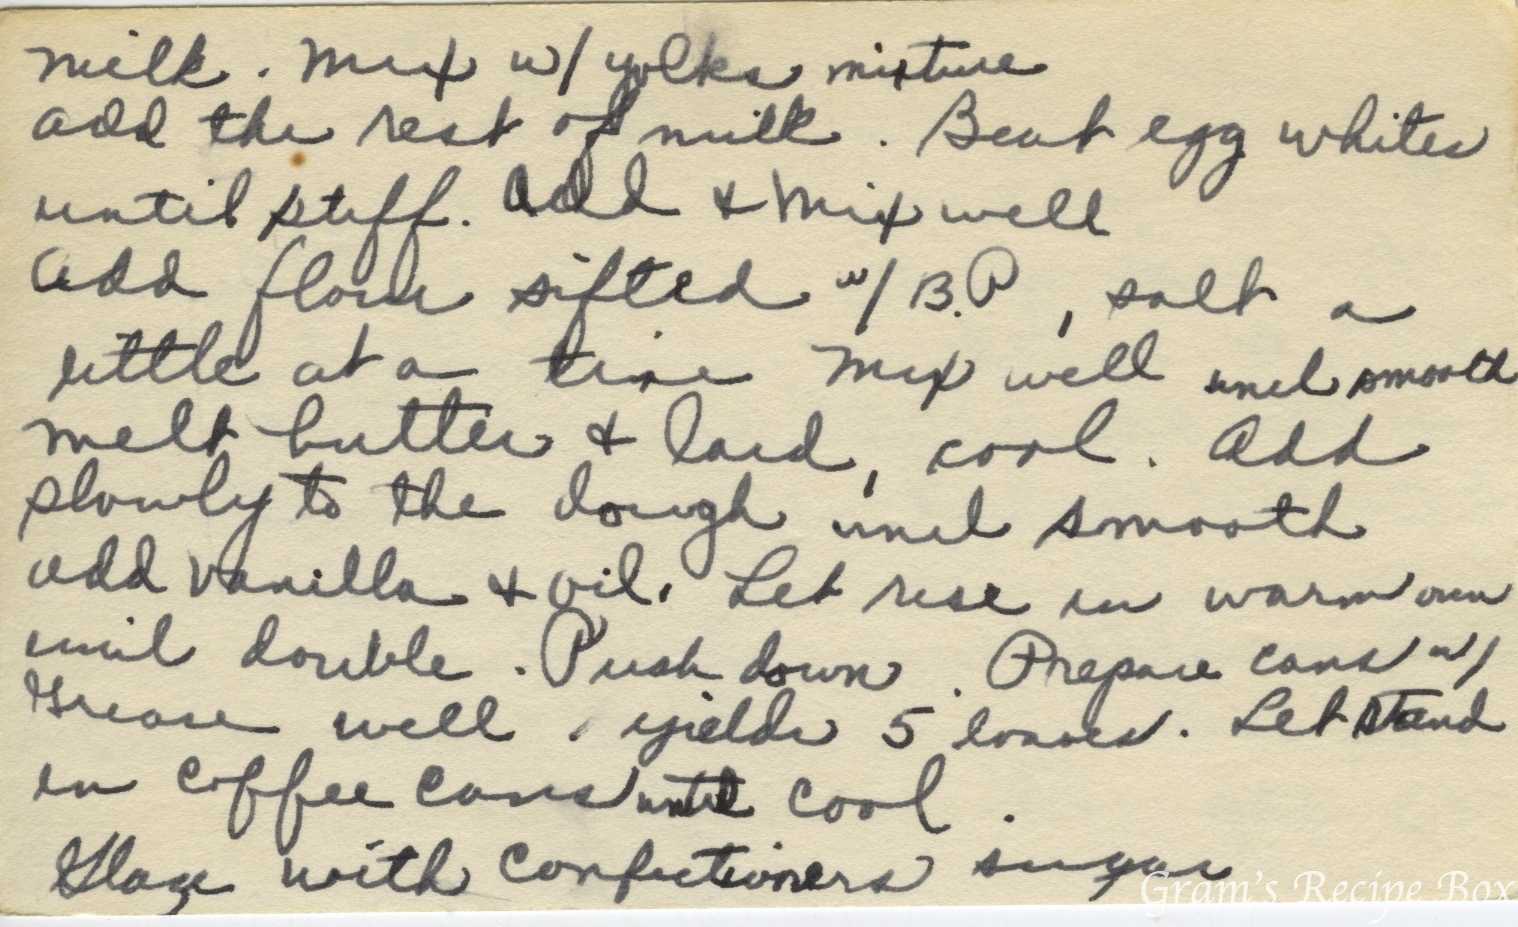 milk. Mix w/ yolks mixture
add the rest of milk. Beat egg whites
until stiff. Add & Mix well
add flour sifted w/ B.P, salt a
little at a time Mix well until smooth
melt butter & lard, cool. Add
slowly to the dough until smooth
add vanilla & oil. Let rise in warm oven
until double. Push down. Prepare cans w/
Grease well. yields 5 loaves. Let stand
in coffee cans until cool.
Glaze with confectioners sugar
Gram's Recipe Box